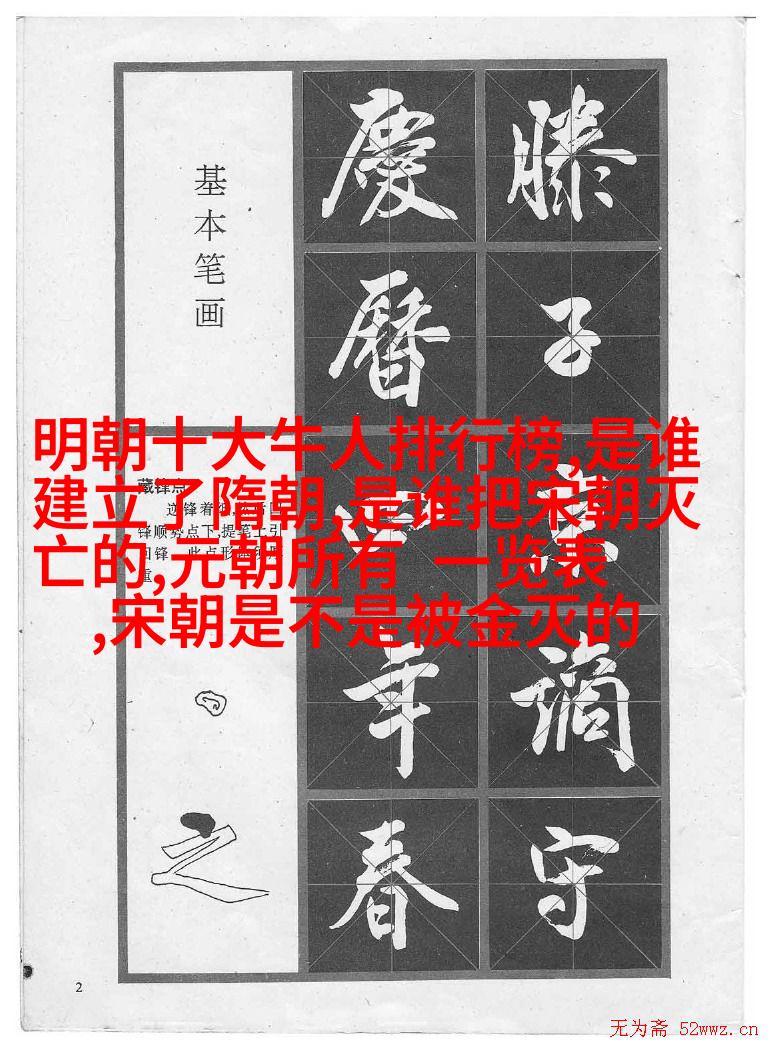 基本笔画
慶 滕
曆 子
明朝十大牛人排行榜,是谁
建立了隋朝,是谁把宋朝灭
亡的,元朝所有 一览表
,宋朝是不是被金灭的
藏锋点
锋顺势点下,提笔上引
年 谪
春 守
之
2
无为斋 52wwz.cn